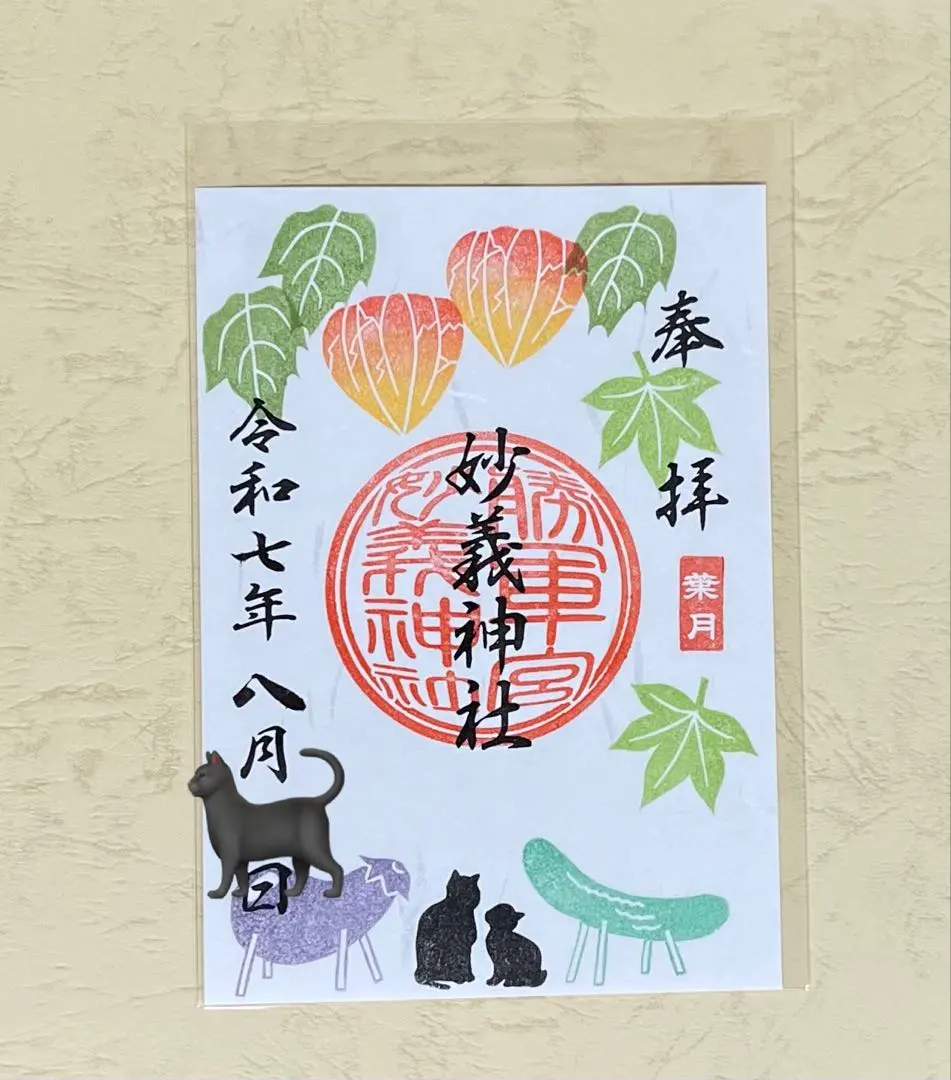 奉拝
葉月
妙義神社
勝軍宮
妙義神社
令和七年 八月
日